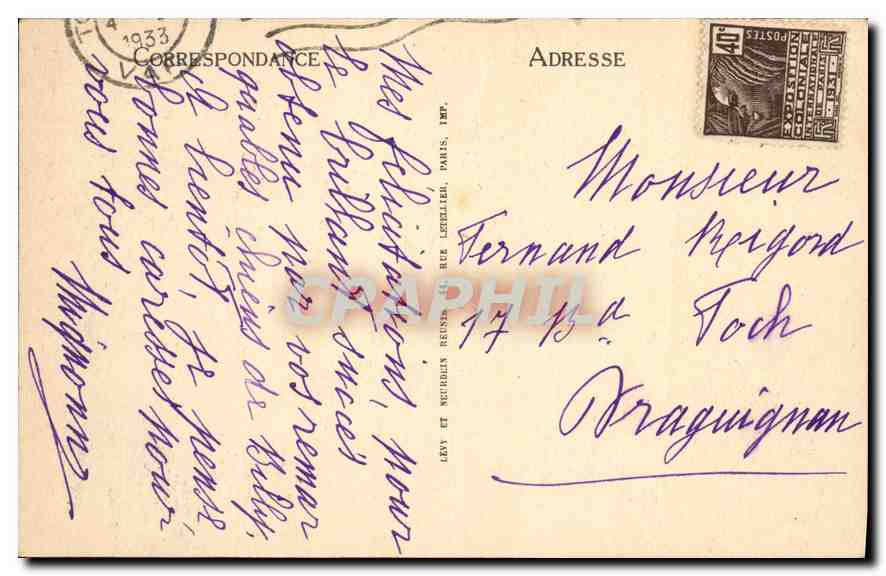 CORRESPONDANCE
ADRESSE
1933
VAR
40c
POSTES
EXPOSITION
COLONIALE
INTERNATle
DE PARIS 1931
RF
Mes félicitations, pour
le brillant succès
obtenu par vos remar
quables chiens de Billy.
À bientôt, je pense
bonnes caresses pour
vous tous
Mignonne
LÉVY ET NEURDEIN RÉUNIS 44, RUE LETELLIER, PARIS, IMP.
Monsieur
Fernand Reigord
17 Bd Foch
Draguignan
CPAPHIL